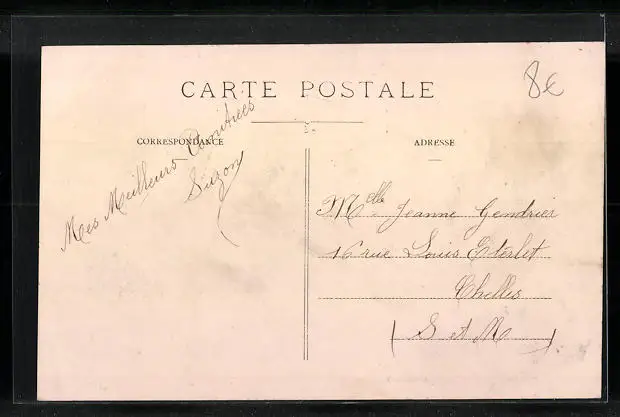 CARTE POSTALE
8€
CORRESPONDANCE
Mes Meilleurs Amitiées
Suzon
ADRESSE
Melle Jeanne Gendrier
16 rue Louis Eterlet
Chelles
(S et M)